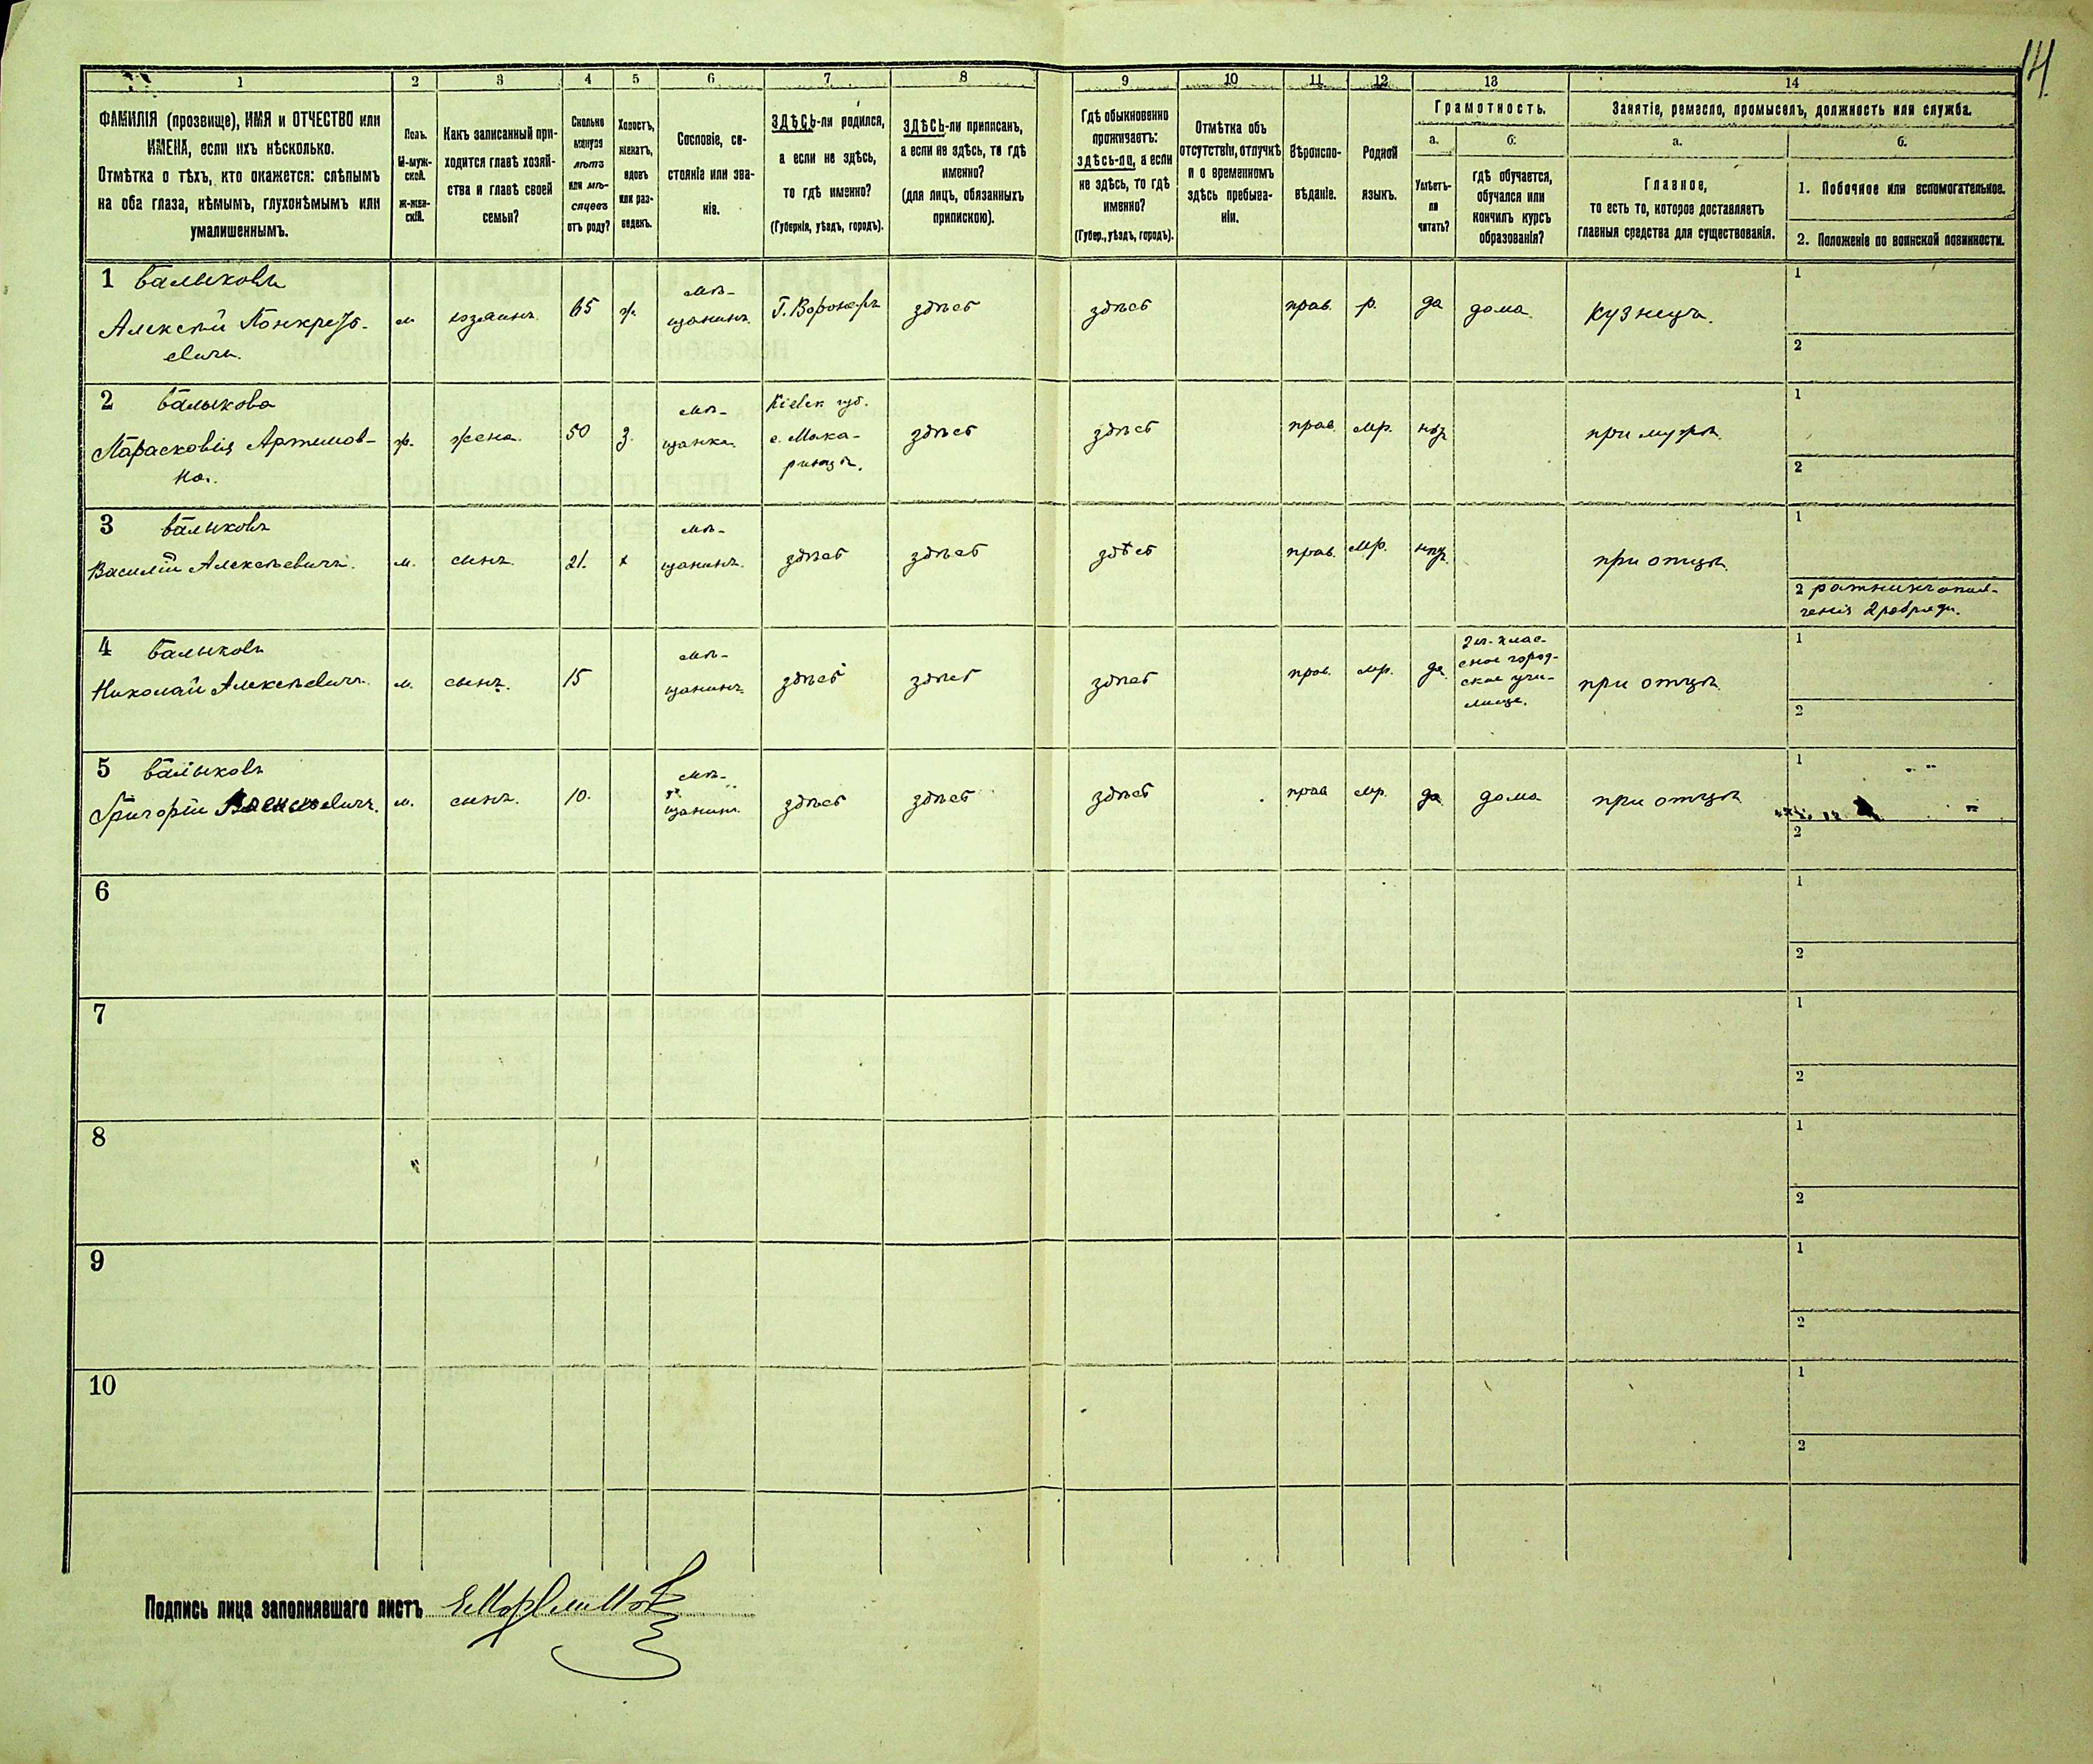 14
1 2 3 4 5 6 7 8 9 10 11 12 13 14
ФАМИЛІЯ (прозвище), ИМЯ и ОТЧЕСТВО или
ИМЕНА, если ихъ нѣсколько.
Отмѣтка о тѣхъ, кто окажется: слѣпымъ
на оба глаза, нѣмымъ, глухонѣмымъ или
умалишеннымъ.
Полъ.
М-муж-
ской.
Ж-жен-
скій.
Какъ записанный при-
ходится главѣ хозяй-
ства и главѣ своей
семьи?
Сколько
минуло
лѣтъ
или мѣ-
сяцевъ
отъ роду?
Холостъ,
женатъ,
вдовъ
или раз-
веденъ.
Сословіе, со-
стояніе или зва-
ніе.
ЗДѢСЬ-ли родился,
а если не здѣсь,
то гдѣ именно?
(Губернія, уѣздъ, городъ).
ЗДѢСЬ-ли приписанъ,
а если не здѣсь, то гдѣ
именно?
(для лицъ, обязанныхъ
припискою).
Гдѣ обыкновенно
проживаетъ:
здѣсь-ли, а если
не здѣсь, то гдѣ
именно?
(Губер., уѣздъ, городъ).
Отмѣтка объ
отсутствіи, отлучкѣ
и о временномъ
здѣсь пребыва-
ніи.
Вѣроиспо-
вѣданіе.
Родной
языкъ.
Грамотность.
а. б.
Умѣетъ-
ли
читать?
гдѣ обучается,
обучался или
кончилъ курсъ
образованія?
Занятіе, ремесло, промыселъ, должность или служба.
а. б.
Главное,
то есть то, которое доставляетъ
главныя средства для существованія.
1. Побочное или вспомогательное.
2. Положеніе по воинской повинности.
1 Балыковъ
Алексѣй Понкрать-
евичъ.
м хозяинъ 65 ж. мѣ-
щанинъ. Г. Воронежъ здѣсь здѣсь прав. р. да дома кузнецъ.
1
2
2 Балыкова
Парасковія Артемов-
на.
ж. жена. 50 з. мѣ-
щанка. Кіевск. губ.
с. Мака-
ринцы. здѣсь здѣсь прав. мр. нѣт при мужѣ.
1
2
3 Балыковъ
Василій Алексѣевичъ.
м. сынъ. 21. х мѣ-
щанинъ. здѣсь здѣсь здѣсь прав. мр. нѣт при отцѣ.
1
2 ратникъ опол-
ченія 2 разряда.
4 Балыковъ
Николай Алексѣевичъ.
м. сынъ. 15 мѣ-
щанинъ. здѣсь здѣсь здѣсь прав. мр. да
2х-клас-
сное город-
ское учи-
лище.
при отцѣ.
1
2
5 Балыковъ
Григорій Алексѣевичъ.
м. сынъ. 10. мѣ-
щанинъ. здѣсь здѣсь здѣсь прав мр. да дома при отцѣ
1
2
6
1
2
7
1
2
8
1
2
9
1
2
10
1
2
Подпись лица заполнявшаго листъ